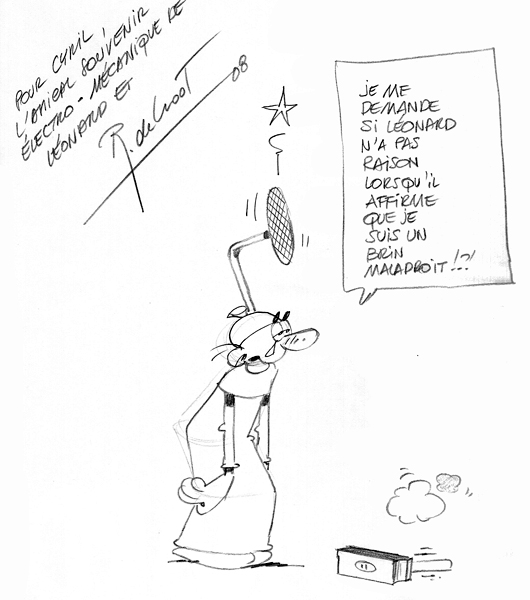 POUR CYRIL,
L'AMICAL SOUVENIR
ÉLECTRO-MÉCANIQUE DE
LÉONARD ET
R. de Groot
08
JE ME
DEMANDE
SI LÉONARD
N'A PAS
RAISON
LORSQU'IL
AFFIRME
QUE JE
SUIS UN
BRIN
MALADROIT!?!